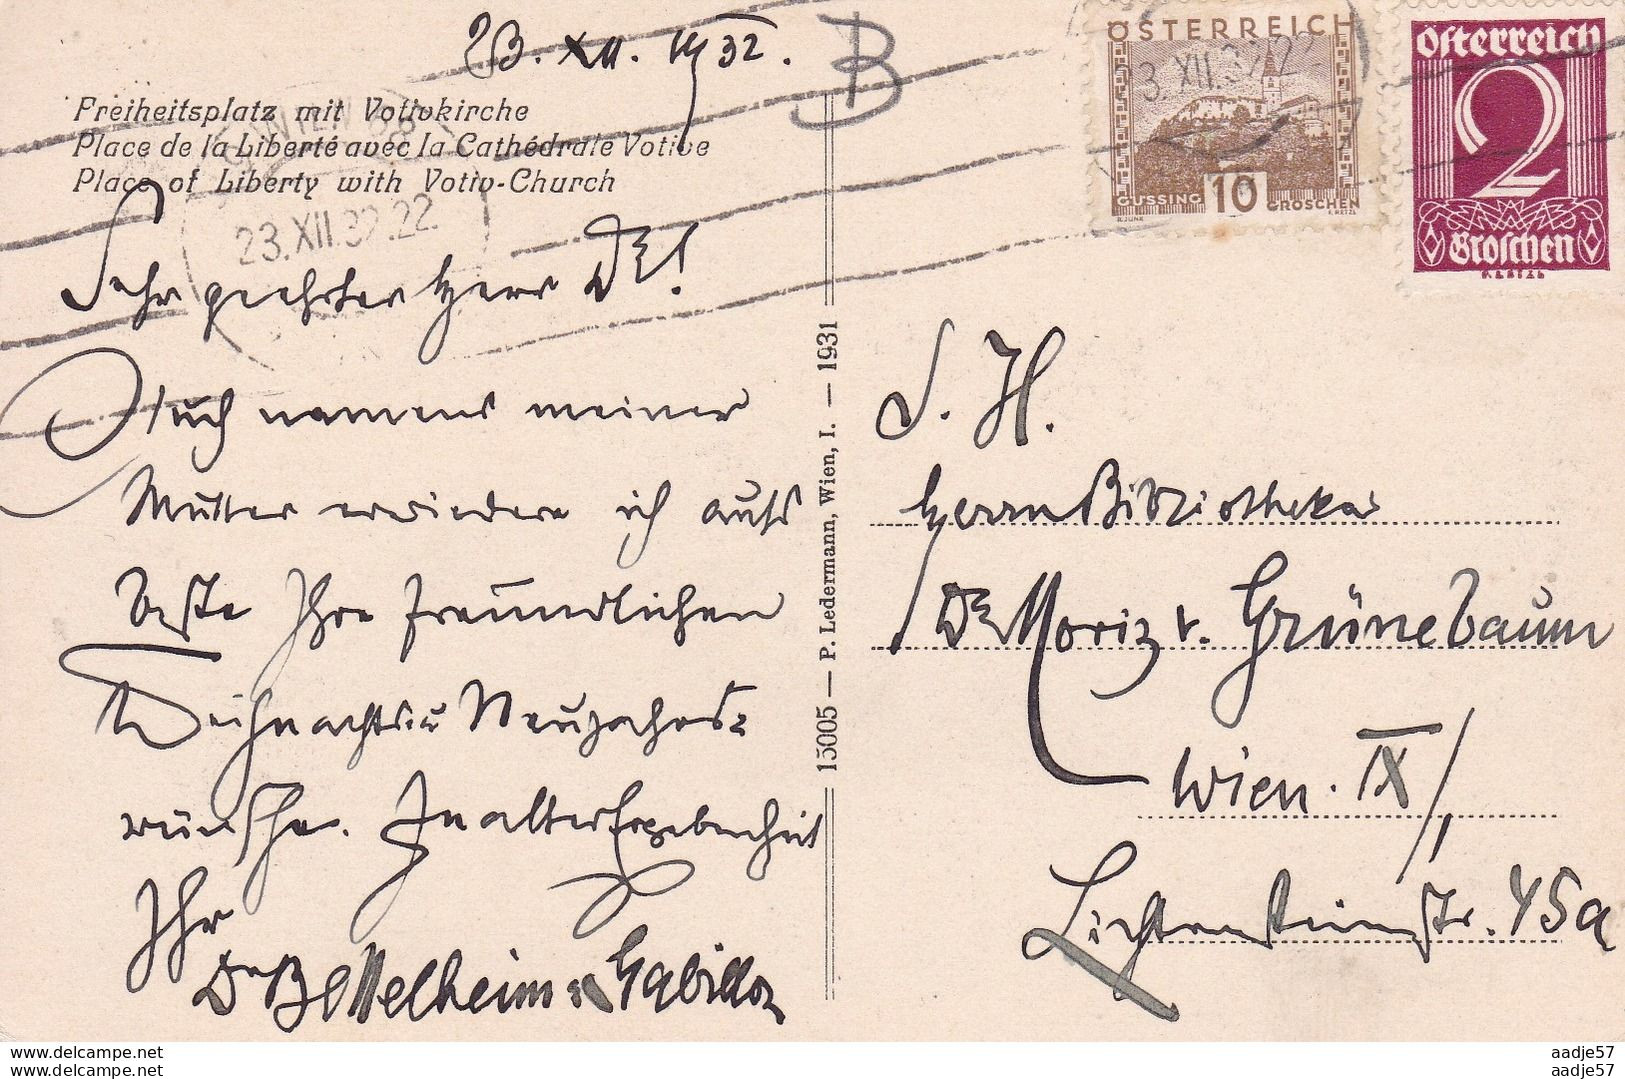 23. XII. 1932.
B
Freiheitsplatz mit Votivkirche
Place de la Liberté avec la Cathédrale Votive
Place of Liberty with Votiv-Church
23.XII.32.22
Sehr geehrter Herr Dr!
Auch namens meiner
Mutter erwiedere ich aufs
beste Ihre freundlichen
Weihnachts- u Neujahrs-
wünsche. In alter Ergebenheit
Ihr
15005 — P. Ledermann, Wien, I. — 1931
ÖSTERREICH
3.XII.32.22
GÜSSING 10 GROSCHEN
Österreich
2
Groschen
S. H.
Herrn Bibliothekar
Dr Moriz v. Grünebaum
Wien. IX/,
Lichtensteinstr. 45a
www.delcampe.net
www.delcampe.net
aadje57
aadje57